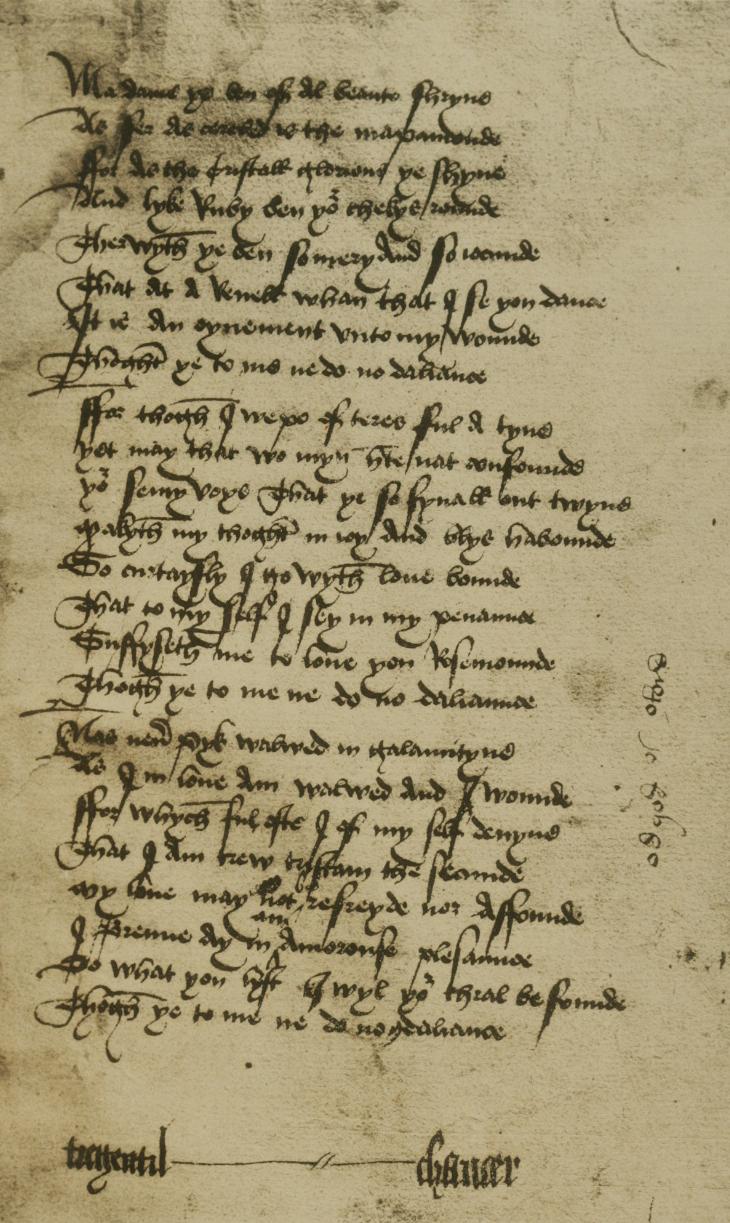 Madame ye ben of Al beaute shryne
As fer As cercled is the mapamounde
ffor As the Cristall glorious ye shyne
And lyke Ruby ben yor chekys rounde
Therwyth ye ben so mery And so iocunde
That At A Reuell whan that I se you dance
It is An oynement vnto my wounde
Thoght ye to me ne do no daliance
ffor thogh I wepe of teres ful A tyne
yet may that wo myn hte nat confounde
yor semy voys That ye so fynall out twyne
makyth my thoght in ioy And blys habounde
So curtaysly I go wyth loue bounde
That to my self I sey in my penaunce
Suffyseth me to loue you Rosemounde
Thogh ye to me ne do no daliaunce
Nas neuer Pyk walwed in galauntyne
As I in loue Am walwed And I wounde
ffor whych ful ofte I of my self deuyne
That I Am trew tristam the secunde
My loue may not refreyde nor Affounde
I Brenne Ay in An Amorouse plesaunce
Do what you lyst I wyl yor thral be founde
Thogh ye to me ne do no daliance
tregentil chaucer